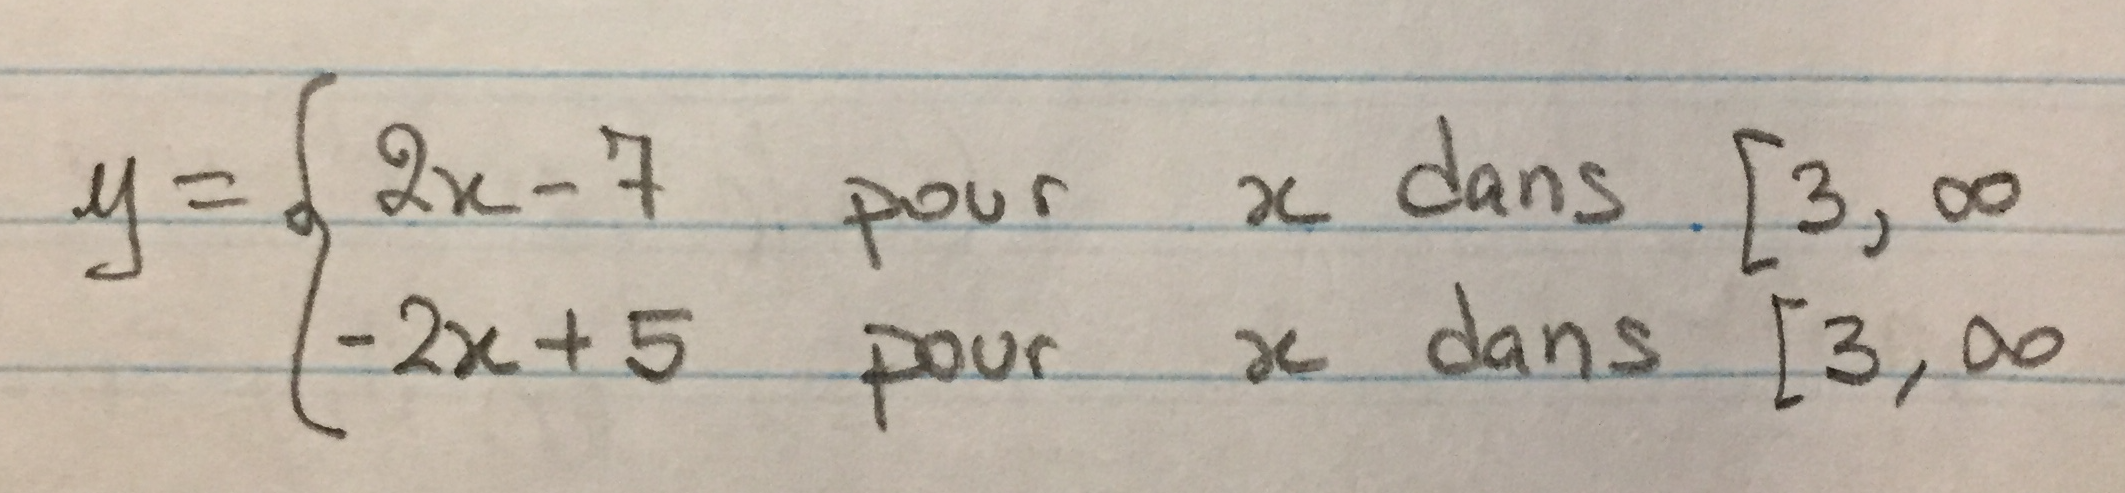 y = { 2x - 7 pour x dans [3, ∞
-2x + 5 pour x dans [3, ∞